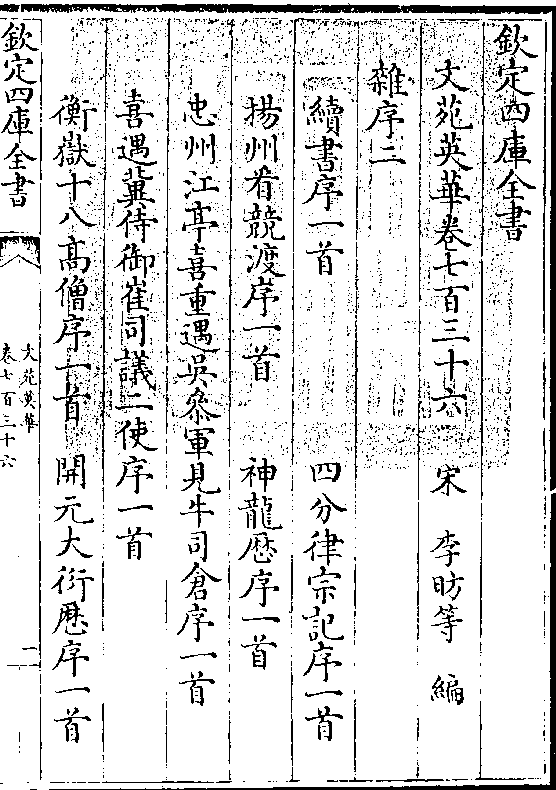 欽定四庫全書
文苑英華卷七百三十六　宋　李昉等　編
雜序二
續書序一首　四分律宗記序一首
揚州看競渡序一首　神龍歷序一首
忠州江亭喜重遇吳叅軍見牛司倉序一首
喜遇冀侍御崔司議二使序一首
衡嶽十八高僧序一首　開元大衍歷序一首
欽定四庫全書
文苑英華
卷七百三十六
一